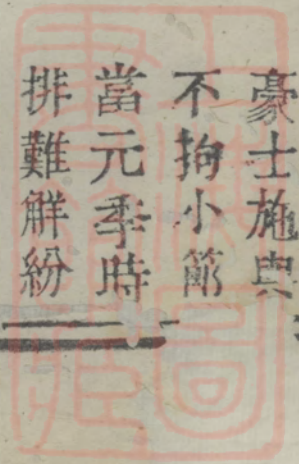 豪士施與
不拘小節
當元季時
排難解紛